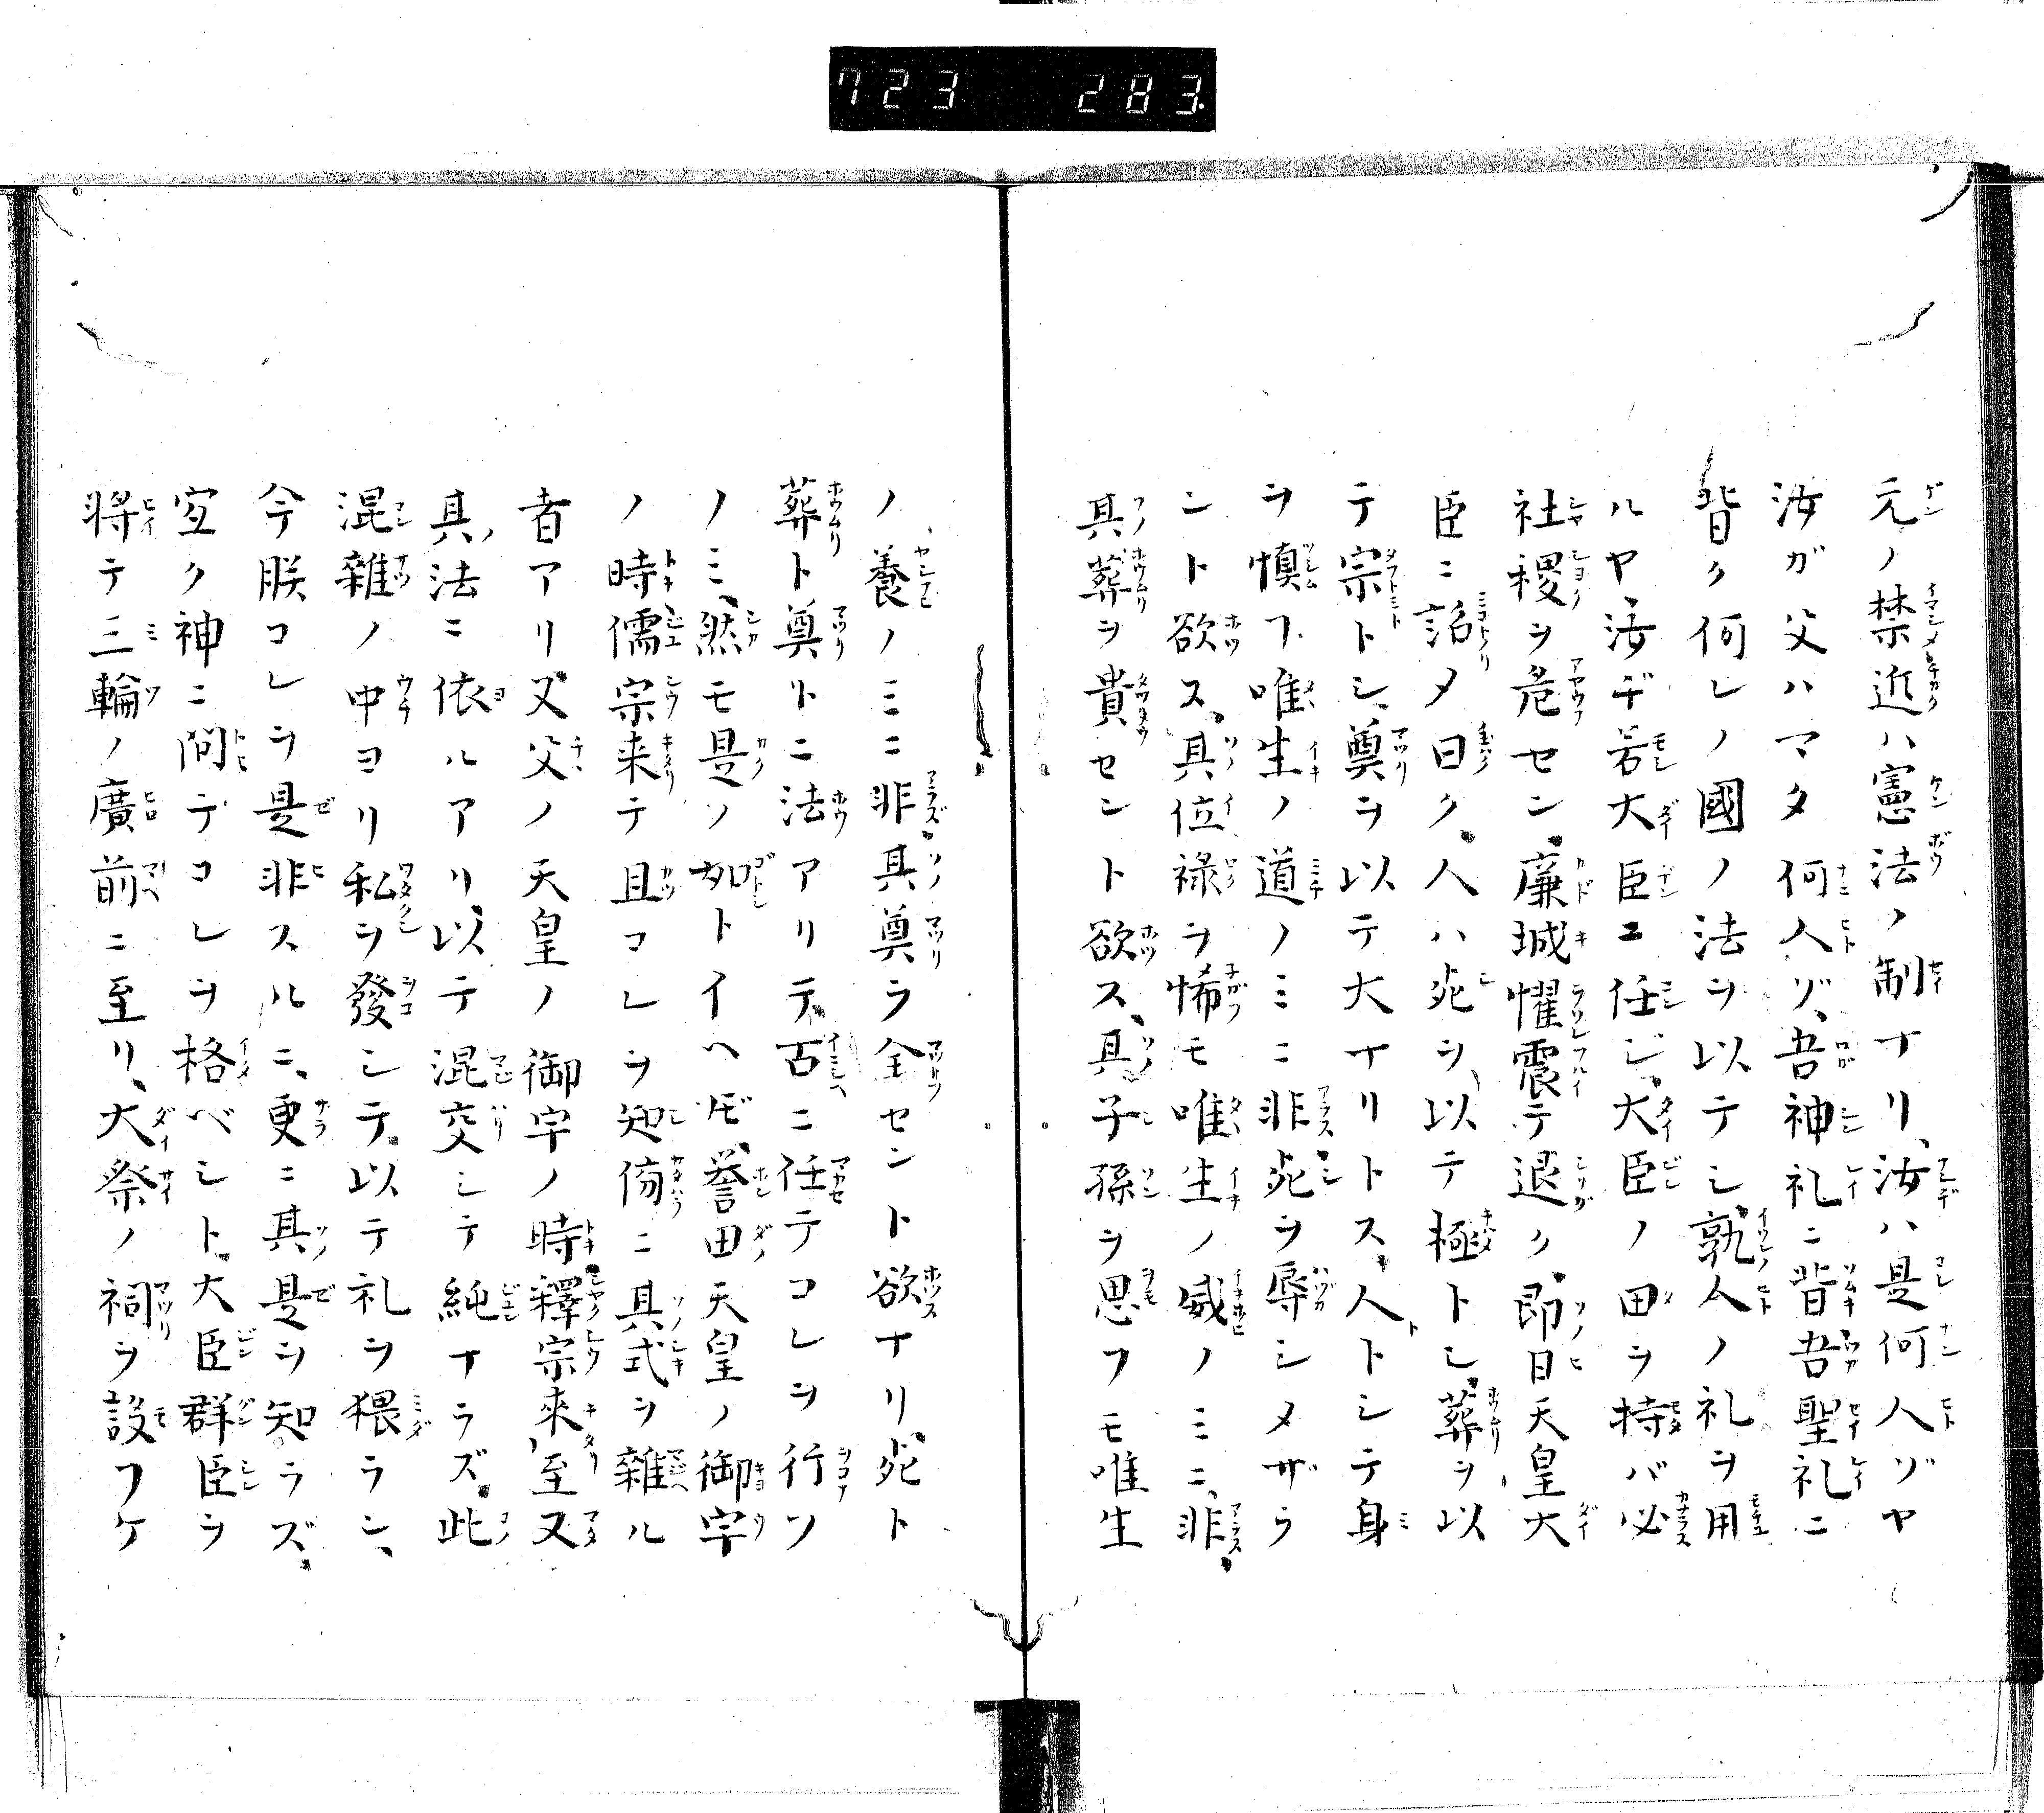 723 283
元ノ禁近ハ憲法ノ制ナリ、汝ハ是何人ゾヤ
汝ガ父ハマタ何人ゾ、吾神礼ニ背吾聖礼ニ
背ク何レノ國ノ法ヲ以テシ、孰人ノ礼ヲ用
ルヤ、汝ヂ若大臣エ任ジ、大臣ノ田ヲ持バ必
社稷ヲ危セン、廉城懼震テ退ク、即日天皇大
臣ニ詔メ曰ク、人ハ死ヲ以テ極トシ、葬ヲ以
テ宗トシ、奠ヲ以テ大ナリトス、人トシテ身
ヲ慎フ唯生ノ道ノミニ非死ヲ辱シメザラ
ント欲ス、具位禄ヲ悕モ唯生ノ威ノミニ、非、
具葬ヲ貴セント欲ス、具子孫ヲ思フモ唯生
ノ養ノミニ非具奠ラ全セント欲ナリ、死ト
葬ト奠トニ法アリテ、古ニ任テコレヲ行ソ
ノミ、然モ是ノ如トイヘドモ、誉田天皇ノ御宇
ノ時儒宗来テ且コレヲ知傍ニ具式ヲ雜ル
者アリ又父ノ天皇ノ御宇ノ時釋宗來至又
具法ニ依ルアリ、以テ混交シテ純ナラズ、此
混雜ノ中ヨリ私ヲ發シテ、以テ礼ヲ猥ラン、
今朕コレヲ是非スルニ、更ニ其是ヲ知ラズ、
宜ク神ニ問デコレヲ格ベシト、大臣群臣ヲ
将テ三輪ノ廣前ニ至リ、大祭ノ祠ヲ設フケ